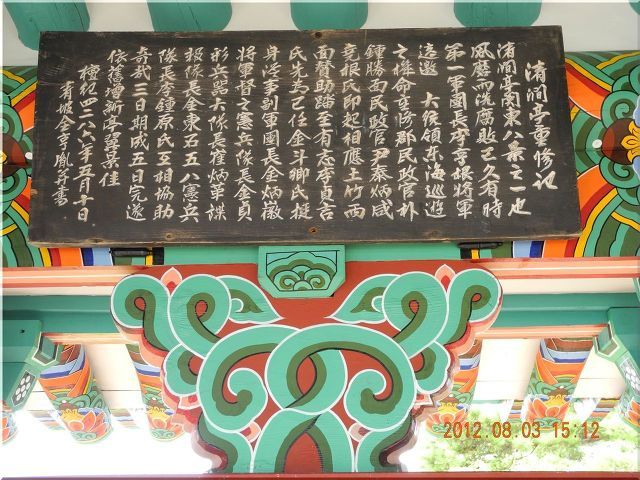 淸澗亭重修記
淸澗亭關東八景之一也
風磨雨洗腐敗已久有時
第一軍團長李亨根將軍
遠邀 大統領東海巡遊
之構命重修郡民政官朴
鍾勝面民政官尹泰炳咸
根氏即起相應土竹両
面賛助踏至有志李貞言
氏先爲己任金斗卿氏挺
身從事副軍團長金炳徽
將軍督之憲兵隊長金貞
彩兵器大隊長崔炳革諜
報隊長金東石五八憲兵
隊長李鍾原氏互相協助
奇哉三日期成五日完遂
依舊增新亭翠景佳
檀紀四二八六年五月十日
青坡金亨胤書
2012.08.03 15:12